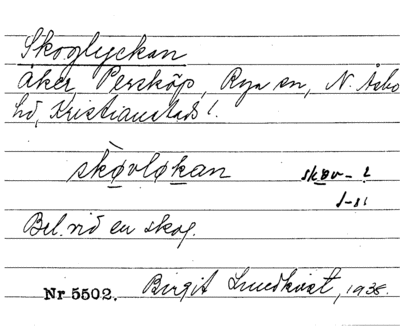 Skoglyckan
åker, Perstorp, Rya sn, N. Åsbo
hd, Kristianstads l.
skøvløkan skøv- ?
Bel. vid en skog.
Nr 5502. Birgit Lundkvist, 1935.